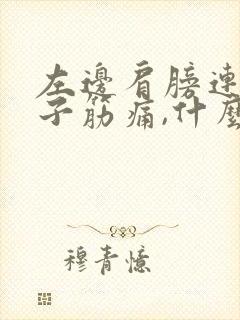 左邊肩膀連
子筋痛,什麼
穆青憶